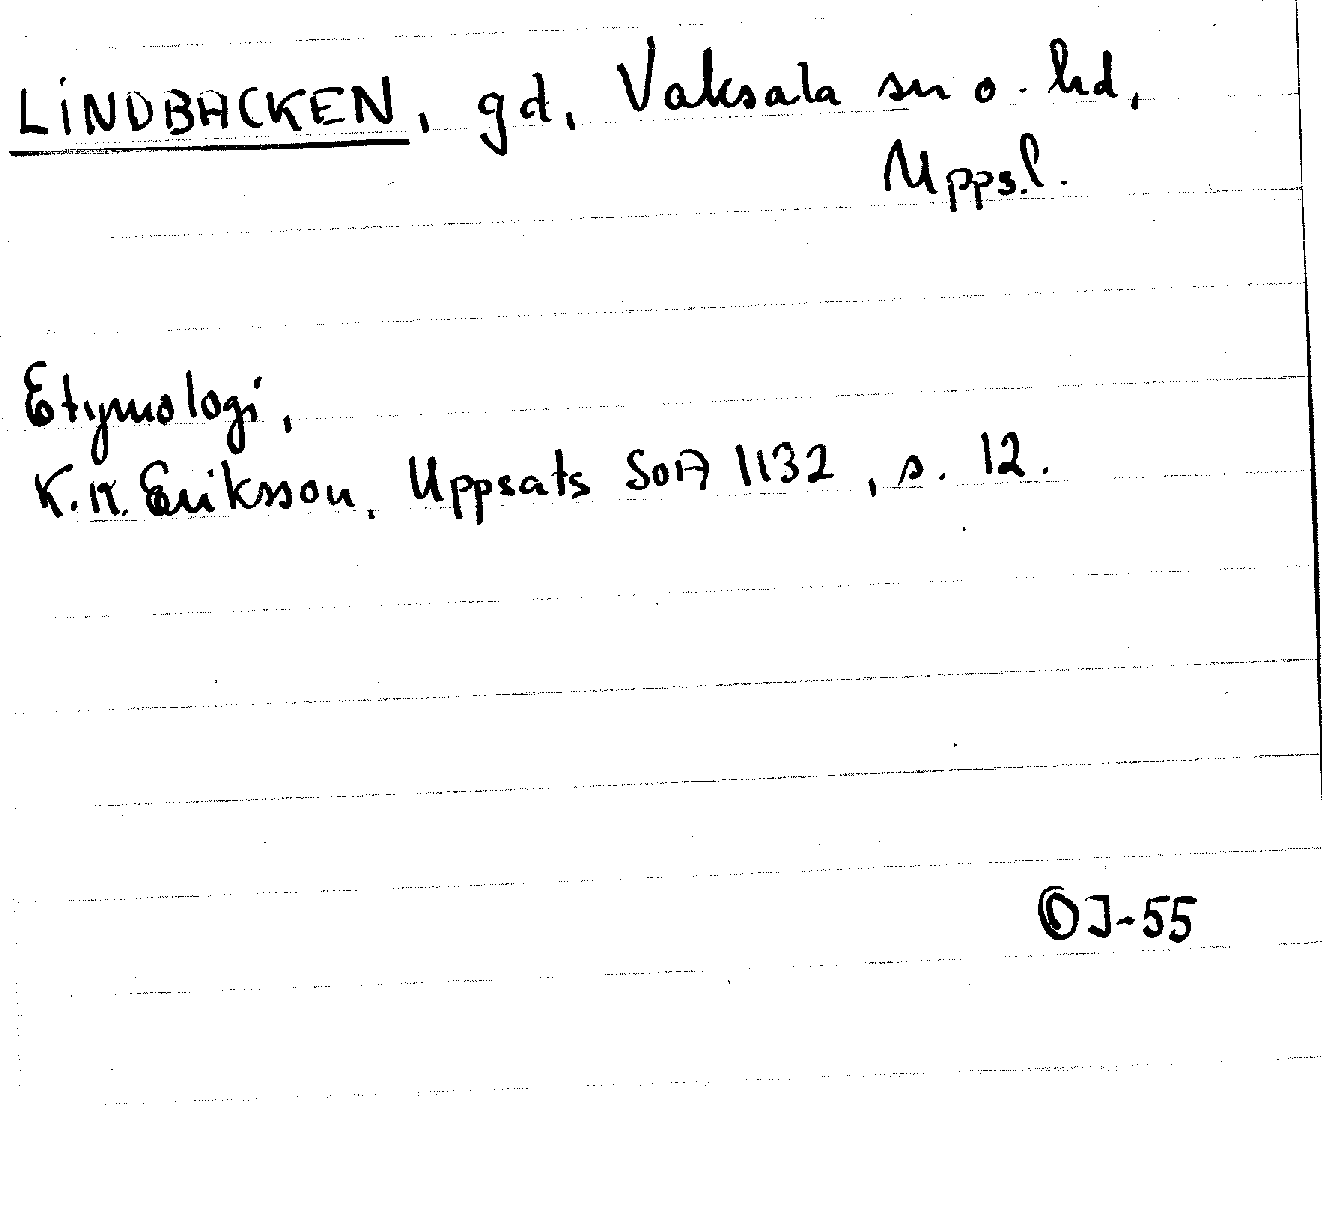 LINDBACKEN, gd, Vaksala sn o. hd,
Uppsl.
Etymologi,
K.R. Eriksson, Uppsats SOA 1132, s. 12.
OJ-55